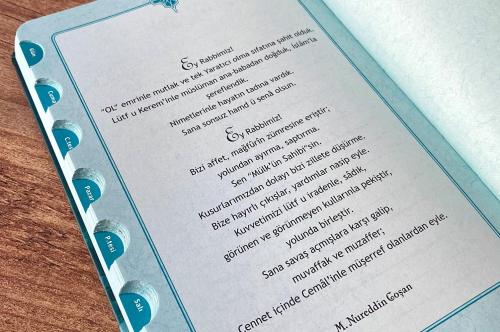 Ey Rabbimiz!
"OL" emrinle mutlak ve tek Yaratıcı olma sıfatına şahit olduk.
Lütf u Kerem'inle müslüman ana-babadan doğduk, İslâm'la
şereflendik.
Nimetlerinle hayatın tadına vardık.
Sana sonsuz hamd ü senâ olsun.
Ey Rabbimiz!
Bizi affet, mağfûrîn zümresine eriştir;
yolundan ayırma, saptırma.
Sen "Mülk'ün Sahibi"sin.
Kusurlarımızdan dolayı bizi zillete düşürme.
Bize hayırlı çıkışlar, yardımlar nasip eyle.
Kuvvetimizi lütf u iradenle, sâdık,
görünen ve görünmeyen kullarınla pekiştir,
yolunda birleştir.
Sana savaş açmışlara karşı galip,
muvaffak ve muzaffer;
Cennet içinde Cemâl'inle müşerref olanlardan eyle.
M. Nureddin Coşan
Cuma
C.tesi
Pazar
P.tesi
Salı